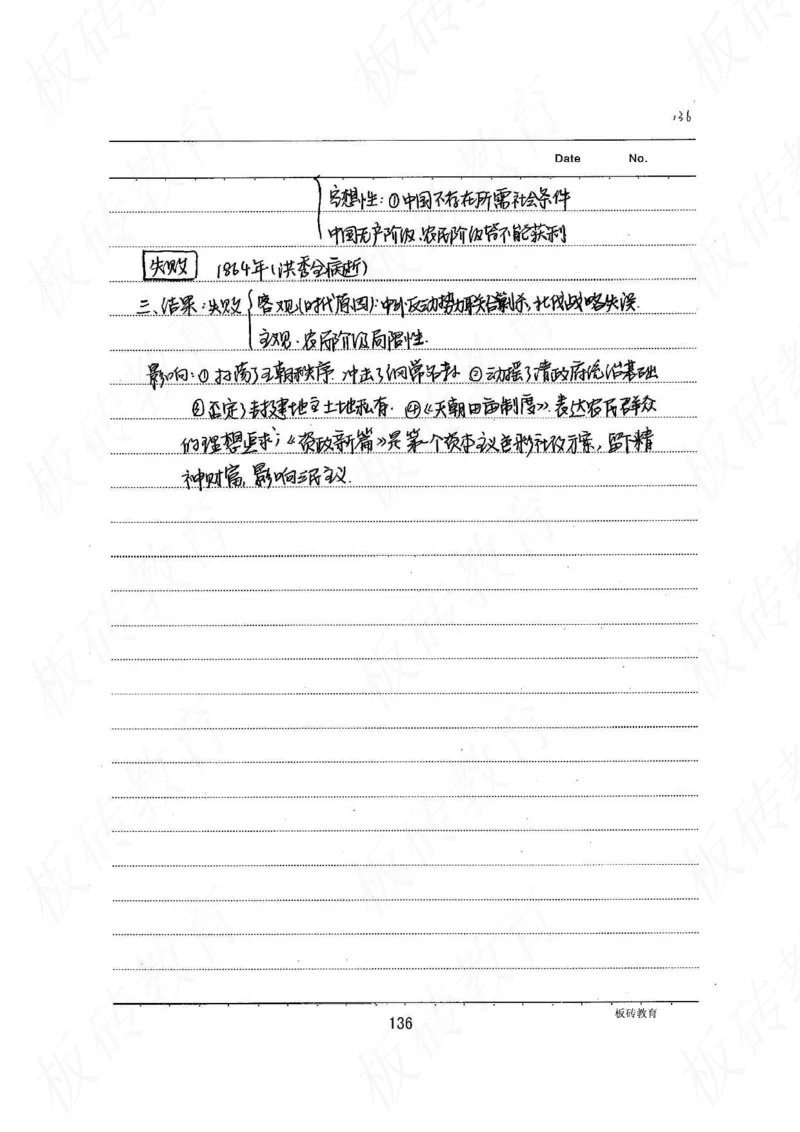 136
Date No.
空想性：①中国不存在所需社会条件
中国无产阶级、农民阶级皆不能获利
失败 1864年(洪秀全病逝)
三、结果：失败 客观(时代原因)：中外反动势力联合剿杀，北伐战略失误
主观：农民阶级局限性.
影响：①扫荡了王朝秩序 冲击了纲常 ②动摇了清政府统治基础
③否定了封建地主土地私有. ④《天朝田亩制度》表达农民群众
的理想追求；《资政新篇》是第一个资本主义色彩社改方案，留下精
神财富，影响三民主义.
136
板砖教育